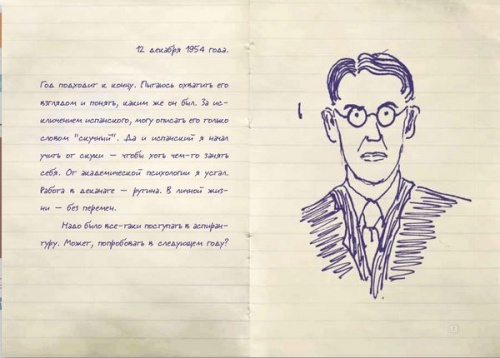 12 декабря 1954 года.
Год подходит к концу. Пытаюсь охватить его
взглядом и понять, каким же он был. За ис-
ключением испанского, могу описать его только
словом "скучный". Да и испанский я начал
учить от скуки — чтобы хоть чем-то занять
себя. От академической психологии я устал.
Работа в деканате — рутина. В личной жиз-
ни — без перемен.
Надо было все-таки поступать в аспиран-
туру. Может, попробовать в следующем году?